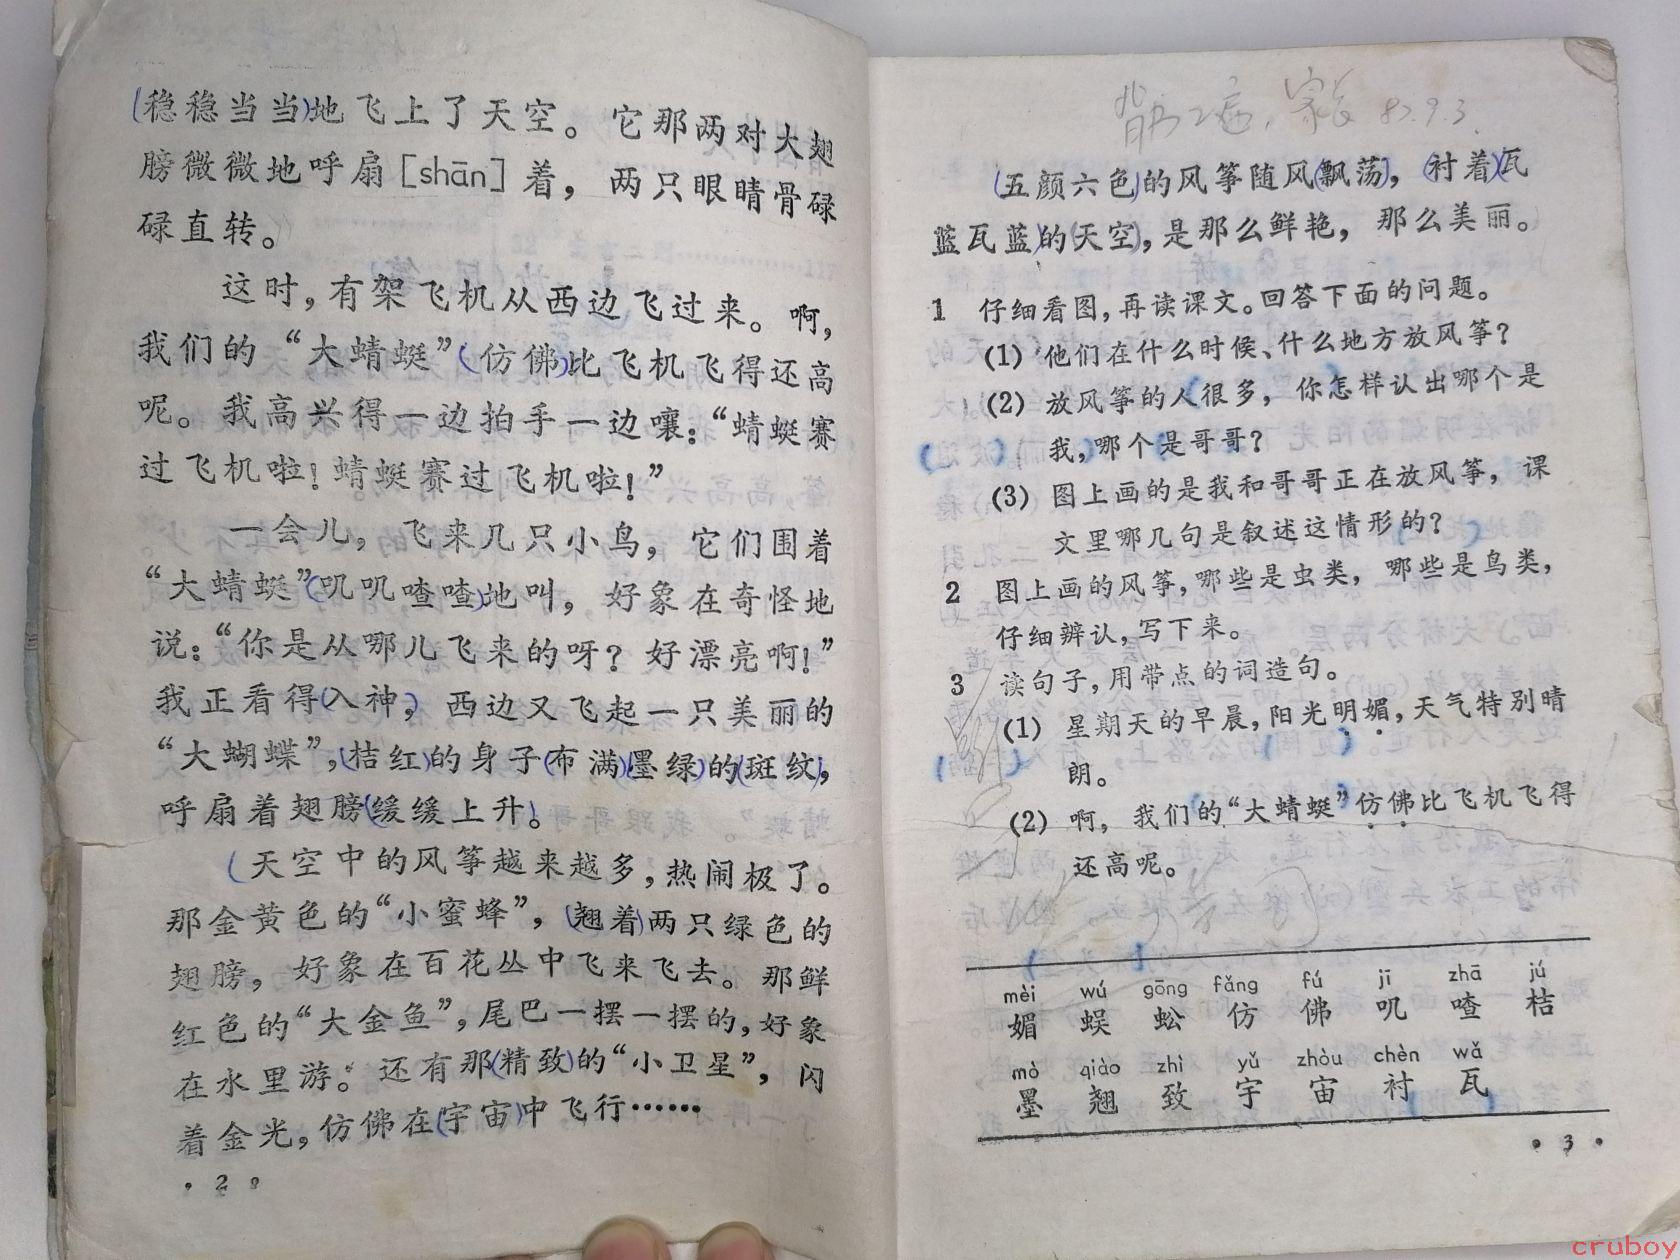 稳稳当当地飞上了天空。它那两对大翅
膀微微地呼扇[shān]着，两只眼睛骨碌
碌直转。
这时，有架飞机从西边飞过来。啊，
我们的“大蜻蜓”仿佛比飞机飞得还高
呢。我高兴得一边拍手一边嚷：“蜻蜓赛
过飞机啦！蜻蜓赛过飞机啦！”
一会儿，飞来几只小鸟，它们围着
“大蜻蜓”叽叽喳喳地叫，好象在奇怪地
说：“你是从哪儿飞来的呀？好漂亮啊！”
我正看得入神，西边又飞起一只美丽的
“大蝴蝶”，桔红的身子布满墨绿的斑纹，
呼扇着翅膀缓缓上升。
天空中的风筝越来越多，热闹极了。
那金黄色的“小蜜蜂”，翘着两只绿色的
翅膀，好象在百花丛中飞来飞去。那鲜
红色的“大金鱼”，尾巴一摆一摆的，好象
在水里游。还有那精致的“小卫星”，闪
着金光，仿佛在宇宙中飞行……
·2·
家长 83.9.3.
五颜六色的风筝随风飘荡，衬着瓦
蓝瓦蓝的天空，是那么鲜艳，那么美丽。
1 仔细看图，再读课文。回答下面的问题。
(1) 他们在什么时候、什么地方放风筝？
(2) 放风筝的人很多，你怎样认出哪个是
我，哪个是哥哥？
(3) 图上画的是我和哥哥正在放风筝，课
文里哪几句是叙述这情形的？
2 图上画的风筝，哪些是虫类，哪些是鸟类，
仔细辨认，写下来。
3 读句子，用带点的词造句。
(1) 星期天的早晨，阳光明媚，天气特别晴
朗。
(2) 啊，我们的“大蜻蜓”仿佛比飞机飞得
还高呢。
mèi wú gōng fǎng fú jī zhā jú
媚 蜈 蚣 仿 佛 叽 喳 桔
mò qiào zhì yǔ zhòu chèn wǎ
墨 翘 致 宇 宙 衬 瓦
·3·
cruboy